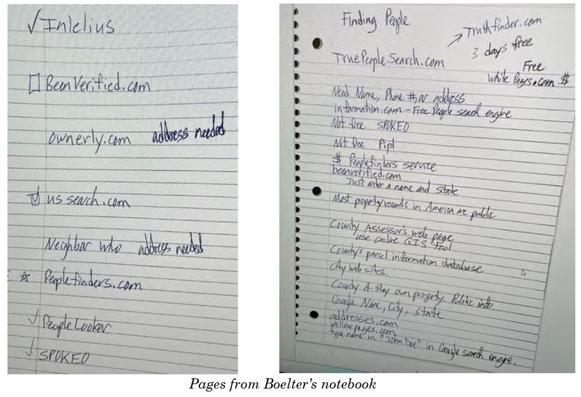 ✓ Intelius
☐ BeenVerified.com
ownerly.com address needed
☑ us search.com
Neighbor Who address needed
☆ Peoplefinders.com
✓ People Looker
✓ SPOKEO
Finding People
→ Truthfinder.com
3 days free
TruePeopleSearch.com
Free
White Pages.com $
Need Name, Phone # or address
information.com - Free People search engine
Not free SPOKEO
Not free Pipl
$ Peoplefinders service
beenverified.com
Just enter a name and state
Most property records in America are public
County Assessor's web page
use online GIS tool
County's parcel information database
City web sites.
County if they own property. Public info.
Google Name, City, State
addresses.com
yellowpages.com
type name in "John Doe" in Google search engine.
Pages from Boelter's notebook